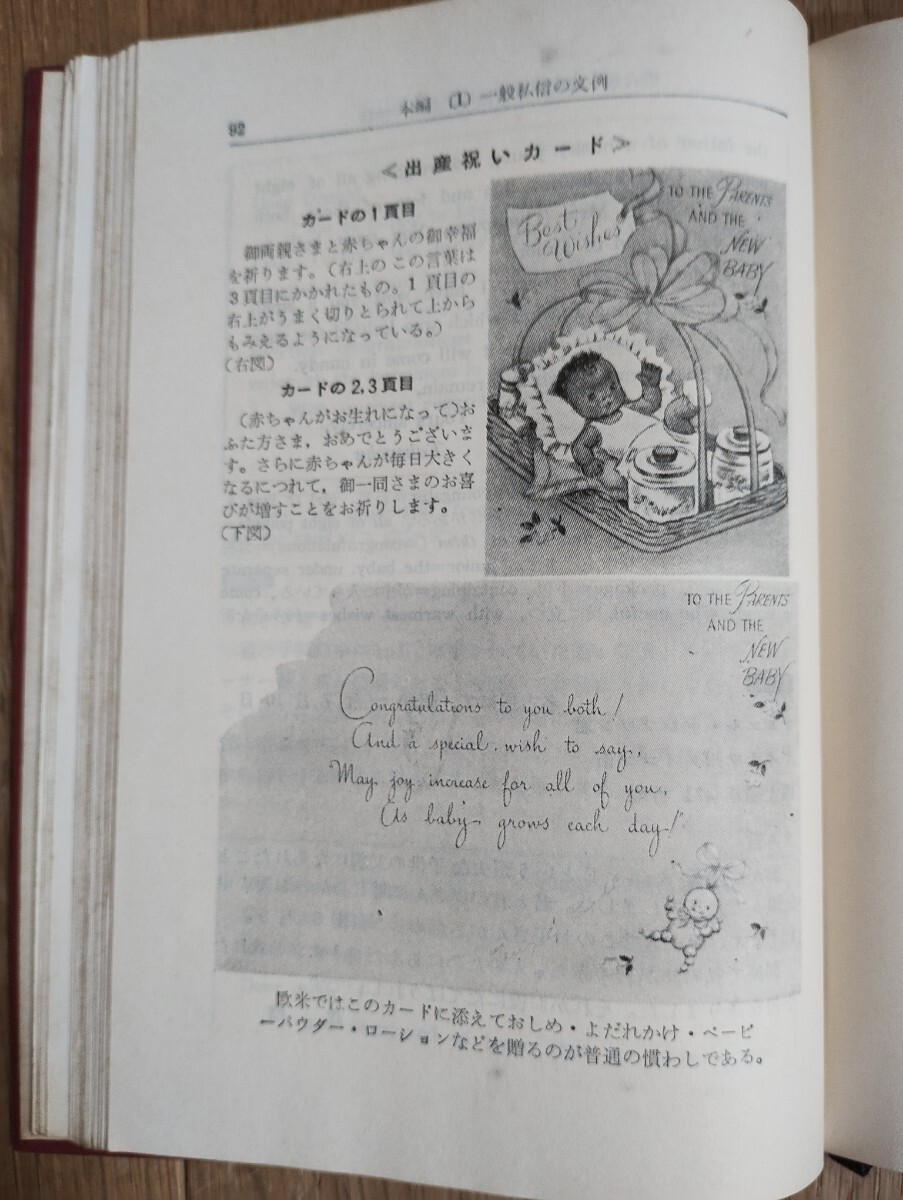 92
本編 (1) 一般私信の文例
＜出産祝いカード＞
カードの1頁目
御両親さまと赤ちゃんの御幸福
を祈ります。（右上の この言葉は
3頁目にかかれたもの。1 頁目の
右上がうまく切りとられて上から
もみえるようになっている。）
（右図）
カードの2,3頁目
（赤ちゃんがお生れになって）お
ふた方さま，おめでとうございま
す。さらに赤ちゃんが毎日大きく
なるにつれて，御一同さまのお喜
びが増すことをお祈りします。
（下図）
Best
Wishes
TO THE PARENTS
AND THE
NEW
BABY
TO THE PARENTS
AND THE
NEW
BABY
Congratulations to you both!
And a special wish to say,
May joy increase for all of you,
As baby grows each day!
欧米ではこのカードに添えておしめ・よだれかけ・ベービ
ーパウダー・ローションなどを贈るのが普通の慣わしである。